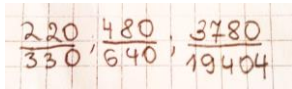 220/330; 480/640; 3780/19404